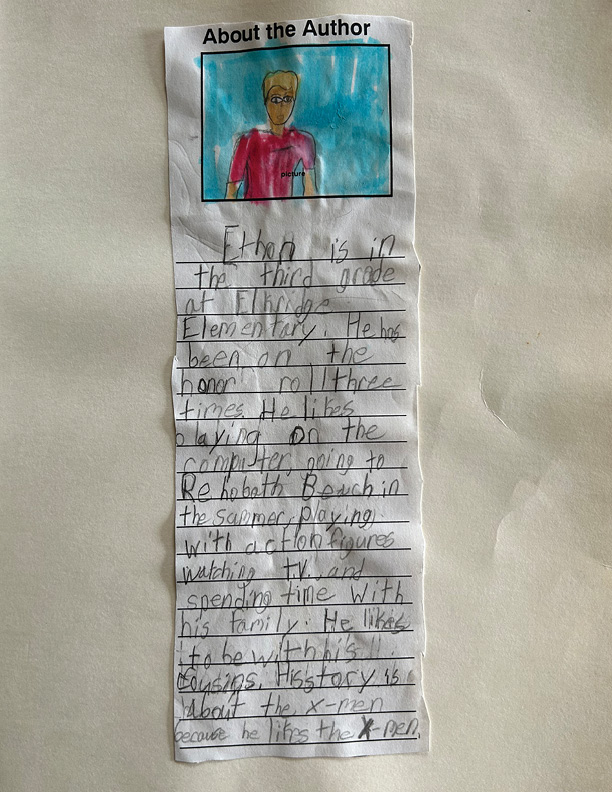 About the Author
picture
Ethan is in
the third grade
at Elkridge
Elementary. He has
been on the
honor roll three
times. He likes
playing on the
computer, going to
Rehoboth Beach in
the summer, playing
with action figures
watching TV. and
spending time with
his family. He likes
to be with his
cousins. His story is
about the X-men
because he likes the X-men.